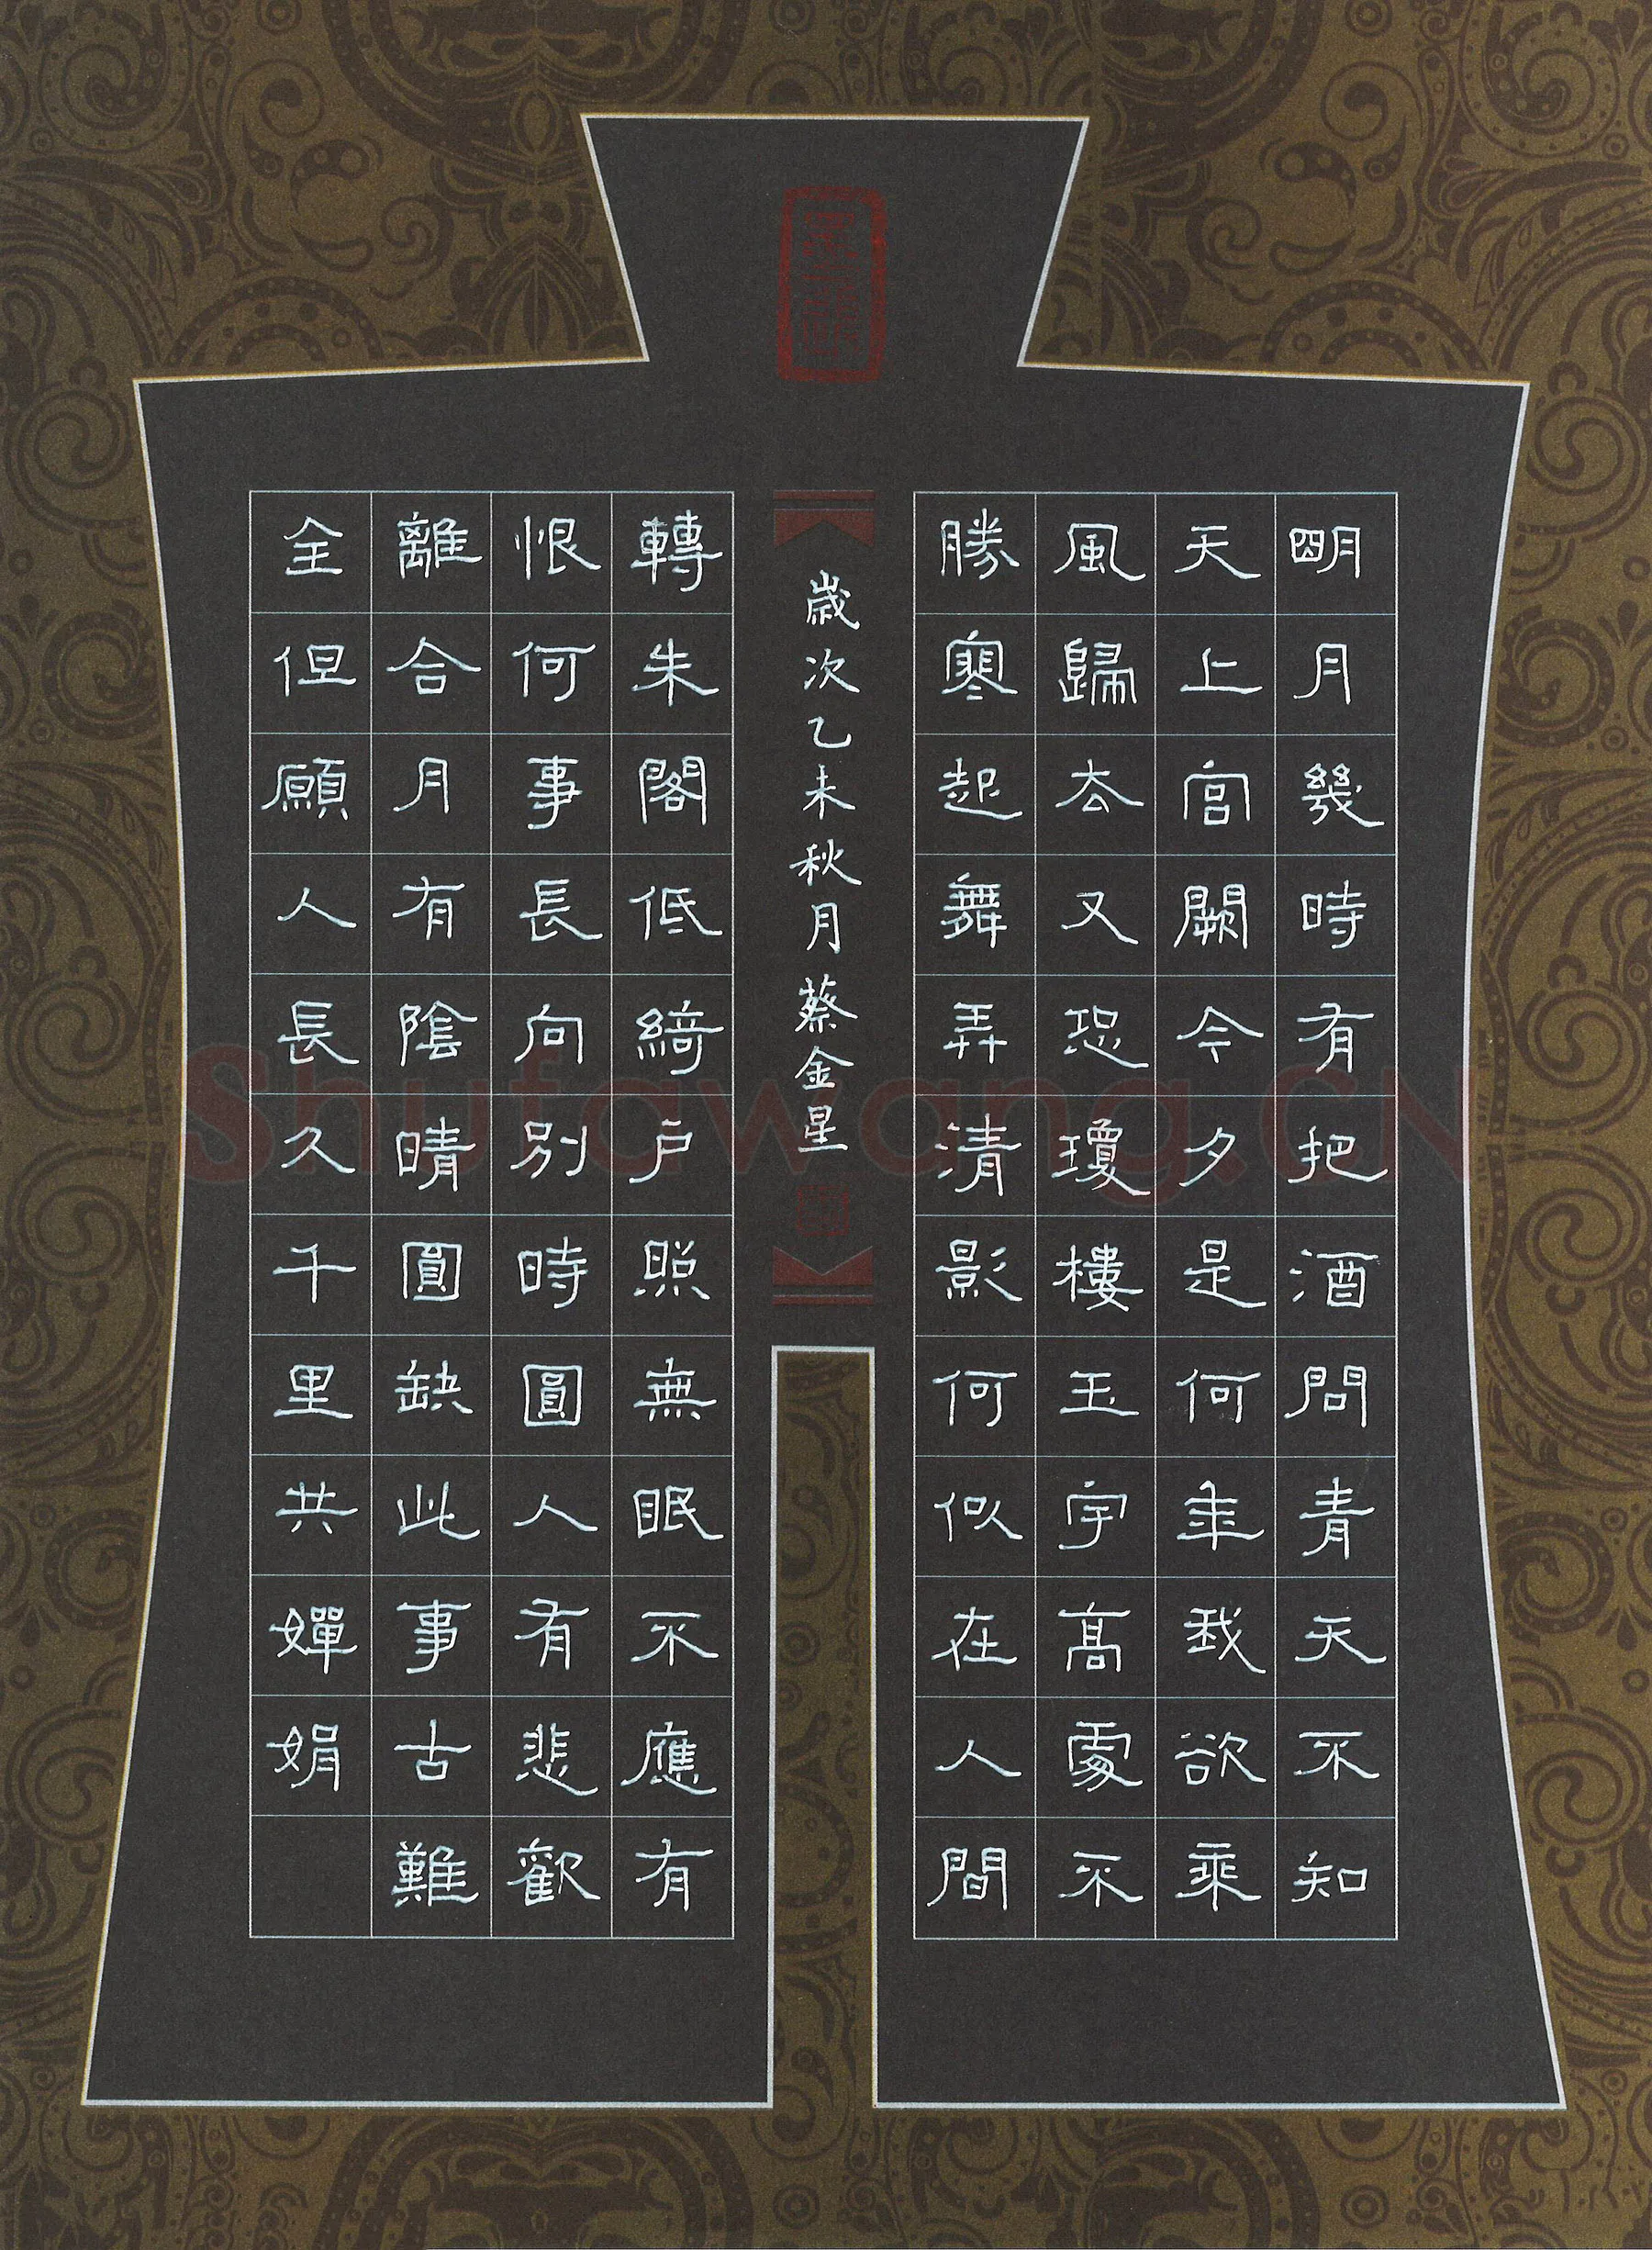 明月幾時有把酒問青天不知
天上宮闕今夕是何年我欲乘
風歸去又恐瓊樓玉宇高處不
勝寒起舞弄清影何似在人間
歲次乙未秋月蔡金星
轉朱閣低綺戶照無眠不應有
恨何事長向別時圓人有悲歡
離合月有陰晴圓缺此事古難
全但願人長久千里共嬋娟
Shufawang.CN